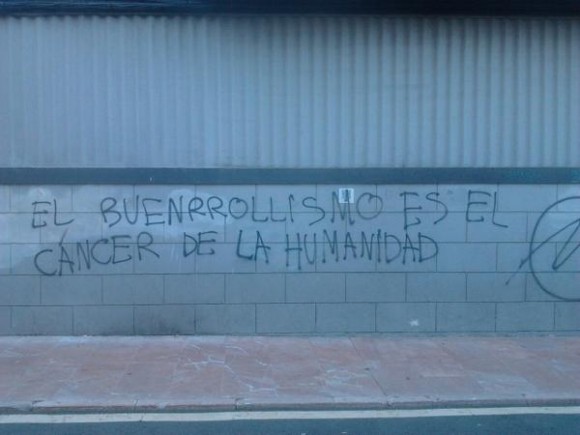 EL BUENRROLLISMO ES EL
CÁNCER DE LA HUMANIDAD